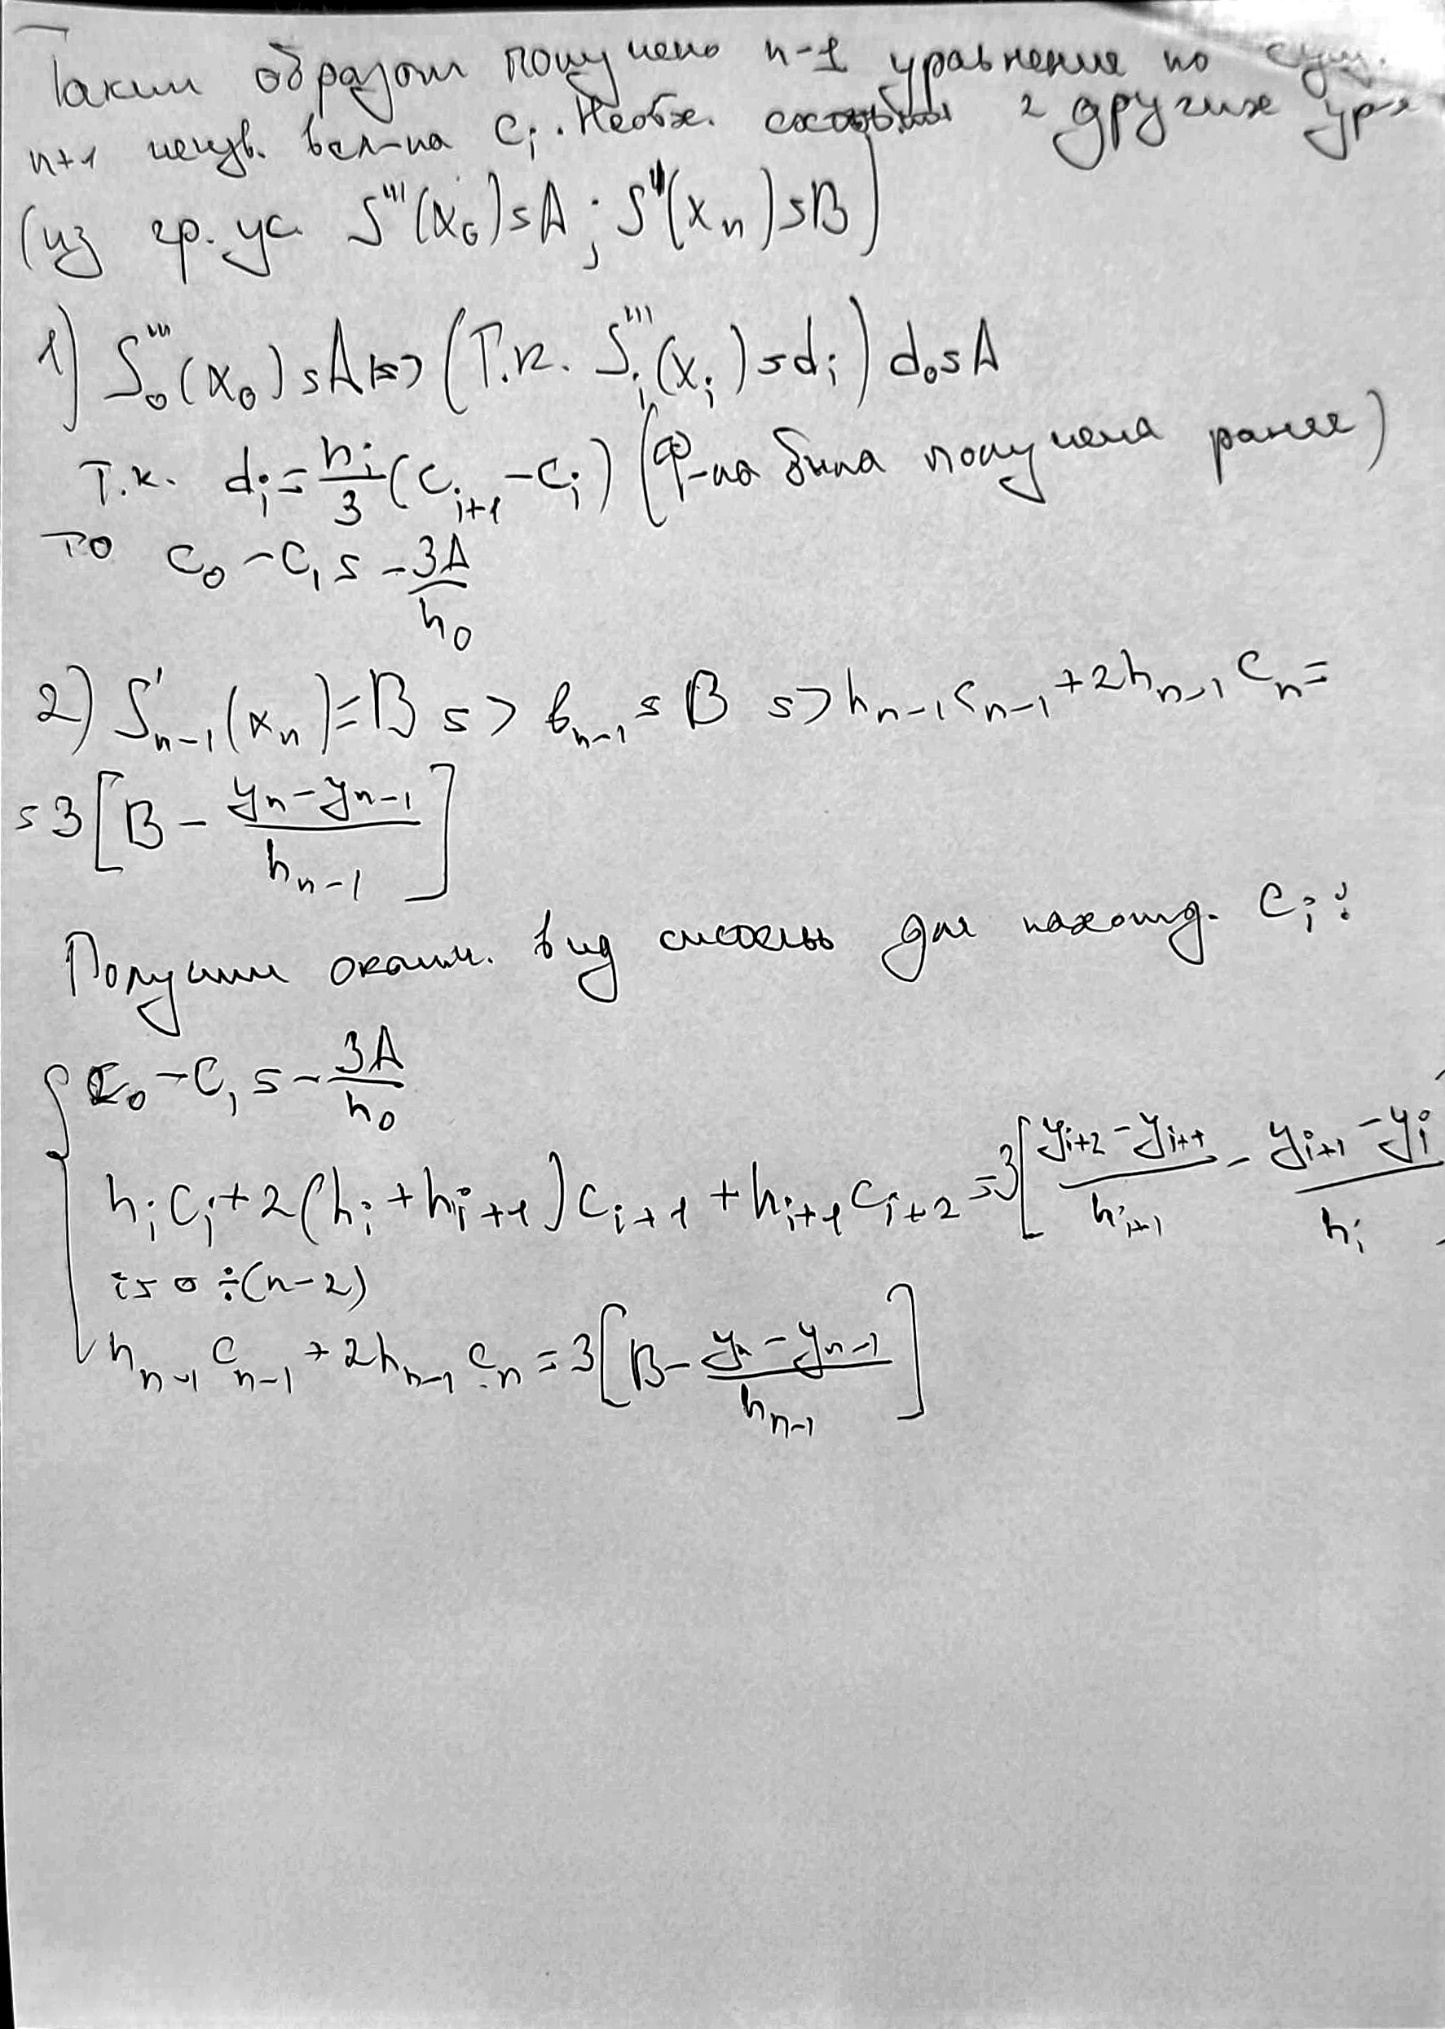 Таким образом получено n-1 уравнение по
n+1 неизв. вел-на Cᵢ. Необх. 2 других ур-я
(из гр. ус. S'''(x₀)=A; S'(xₙ)=B)
1) S₀'''(x₀)=A => (Т.к. Sᵢ'''(xᵢ)=dᵢ) d₀=A
Т.к. dᵢ = hᵢ/3 (cᵢ₊₁ - cᵢ) (Ф-ла была получена ранее)
то c₀ - c₁ = - 3A/h₀
2) S'ₙ₋₁(xₙ) = B => bₙ₋₁ = B => hₙ₋₁cₙ₋₁ + 2hₙ₋₁cₙ =
= 3[B - (yₙ - yₙ₋₁)/hₙ₋₁]
Получим оконч. вид системы для нахожд. Cᵢ:
c₀ - c₁ = - 3A/h₀
hᵢcᵢ + 2(hᵢ + hᵢ₊₁)cᵢ₊₁ + hᵢ₊₁cᵢ₊₂ = 3[(yᵢ₊₂ - yᵢ₊₁)/hᵢ₊₁ - (yᵢ₊₁ - yᵢ)/hᵢ]
i = 0 ÷ (n-2)
hₙ₋₁cₙ₋₁ + 2hₙ₋₁cₙ = 3[B - (yₙ - yₙ₋₁)/hₙ₋₁]